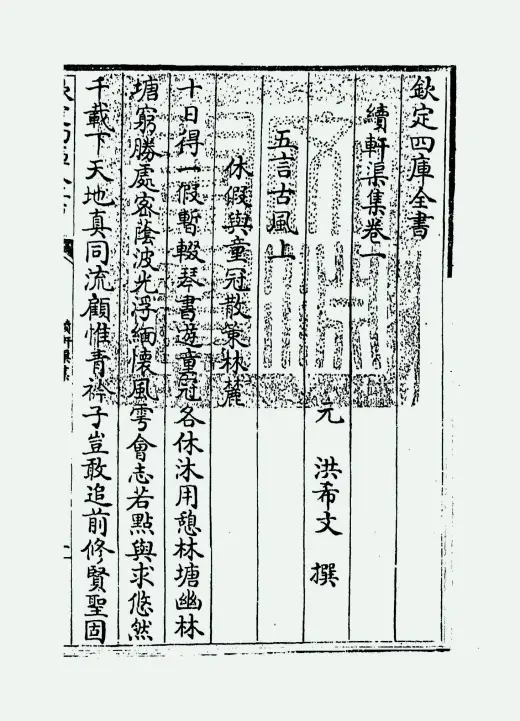 欽定四庫全書
續軒渠集卷一
元 洪希文 撰
五言古風上
休假與童冠散策林麓
十日得一假暫輟琴書遊童冠各休沐用憩林塘幽林
塘窮勝處密蔭波光浮緬懷風雩會志若點與求悠然
千載下天地真同流顧惟青衿子豈敢追前修賢聖固
續軒渠集